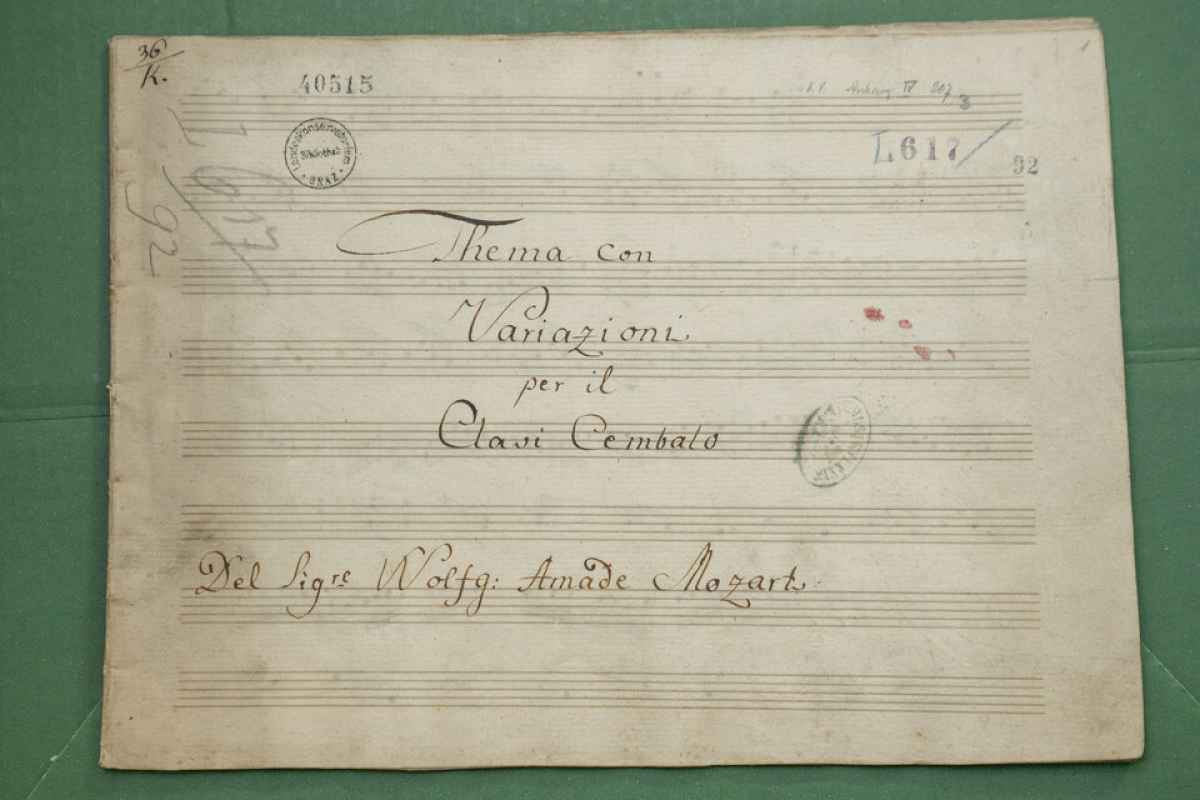 36
K.
40515
Anhang IV 207
3
1
L617
92
Landeskonservatorium
Bibliothek
GRAZ
L 617
92
Thema con
Variazioni
per il
Clavi Cembalo
Del Sigre Wolfg: Amade Mozart